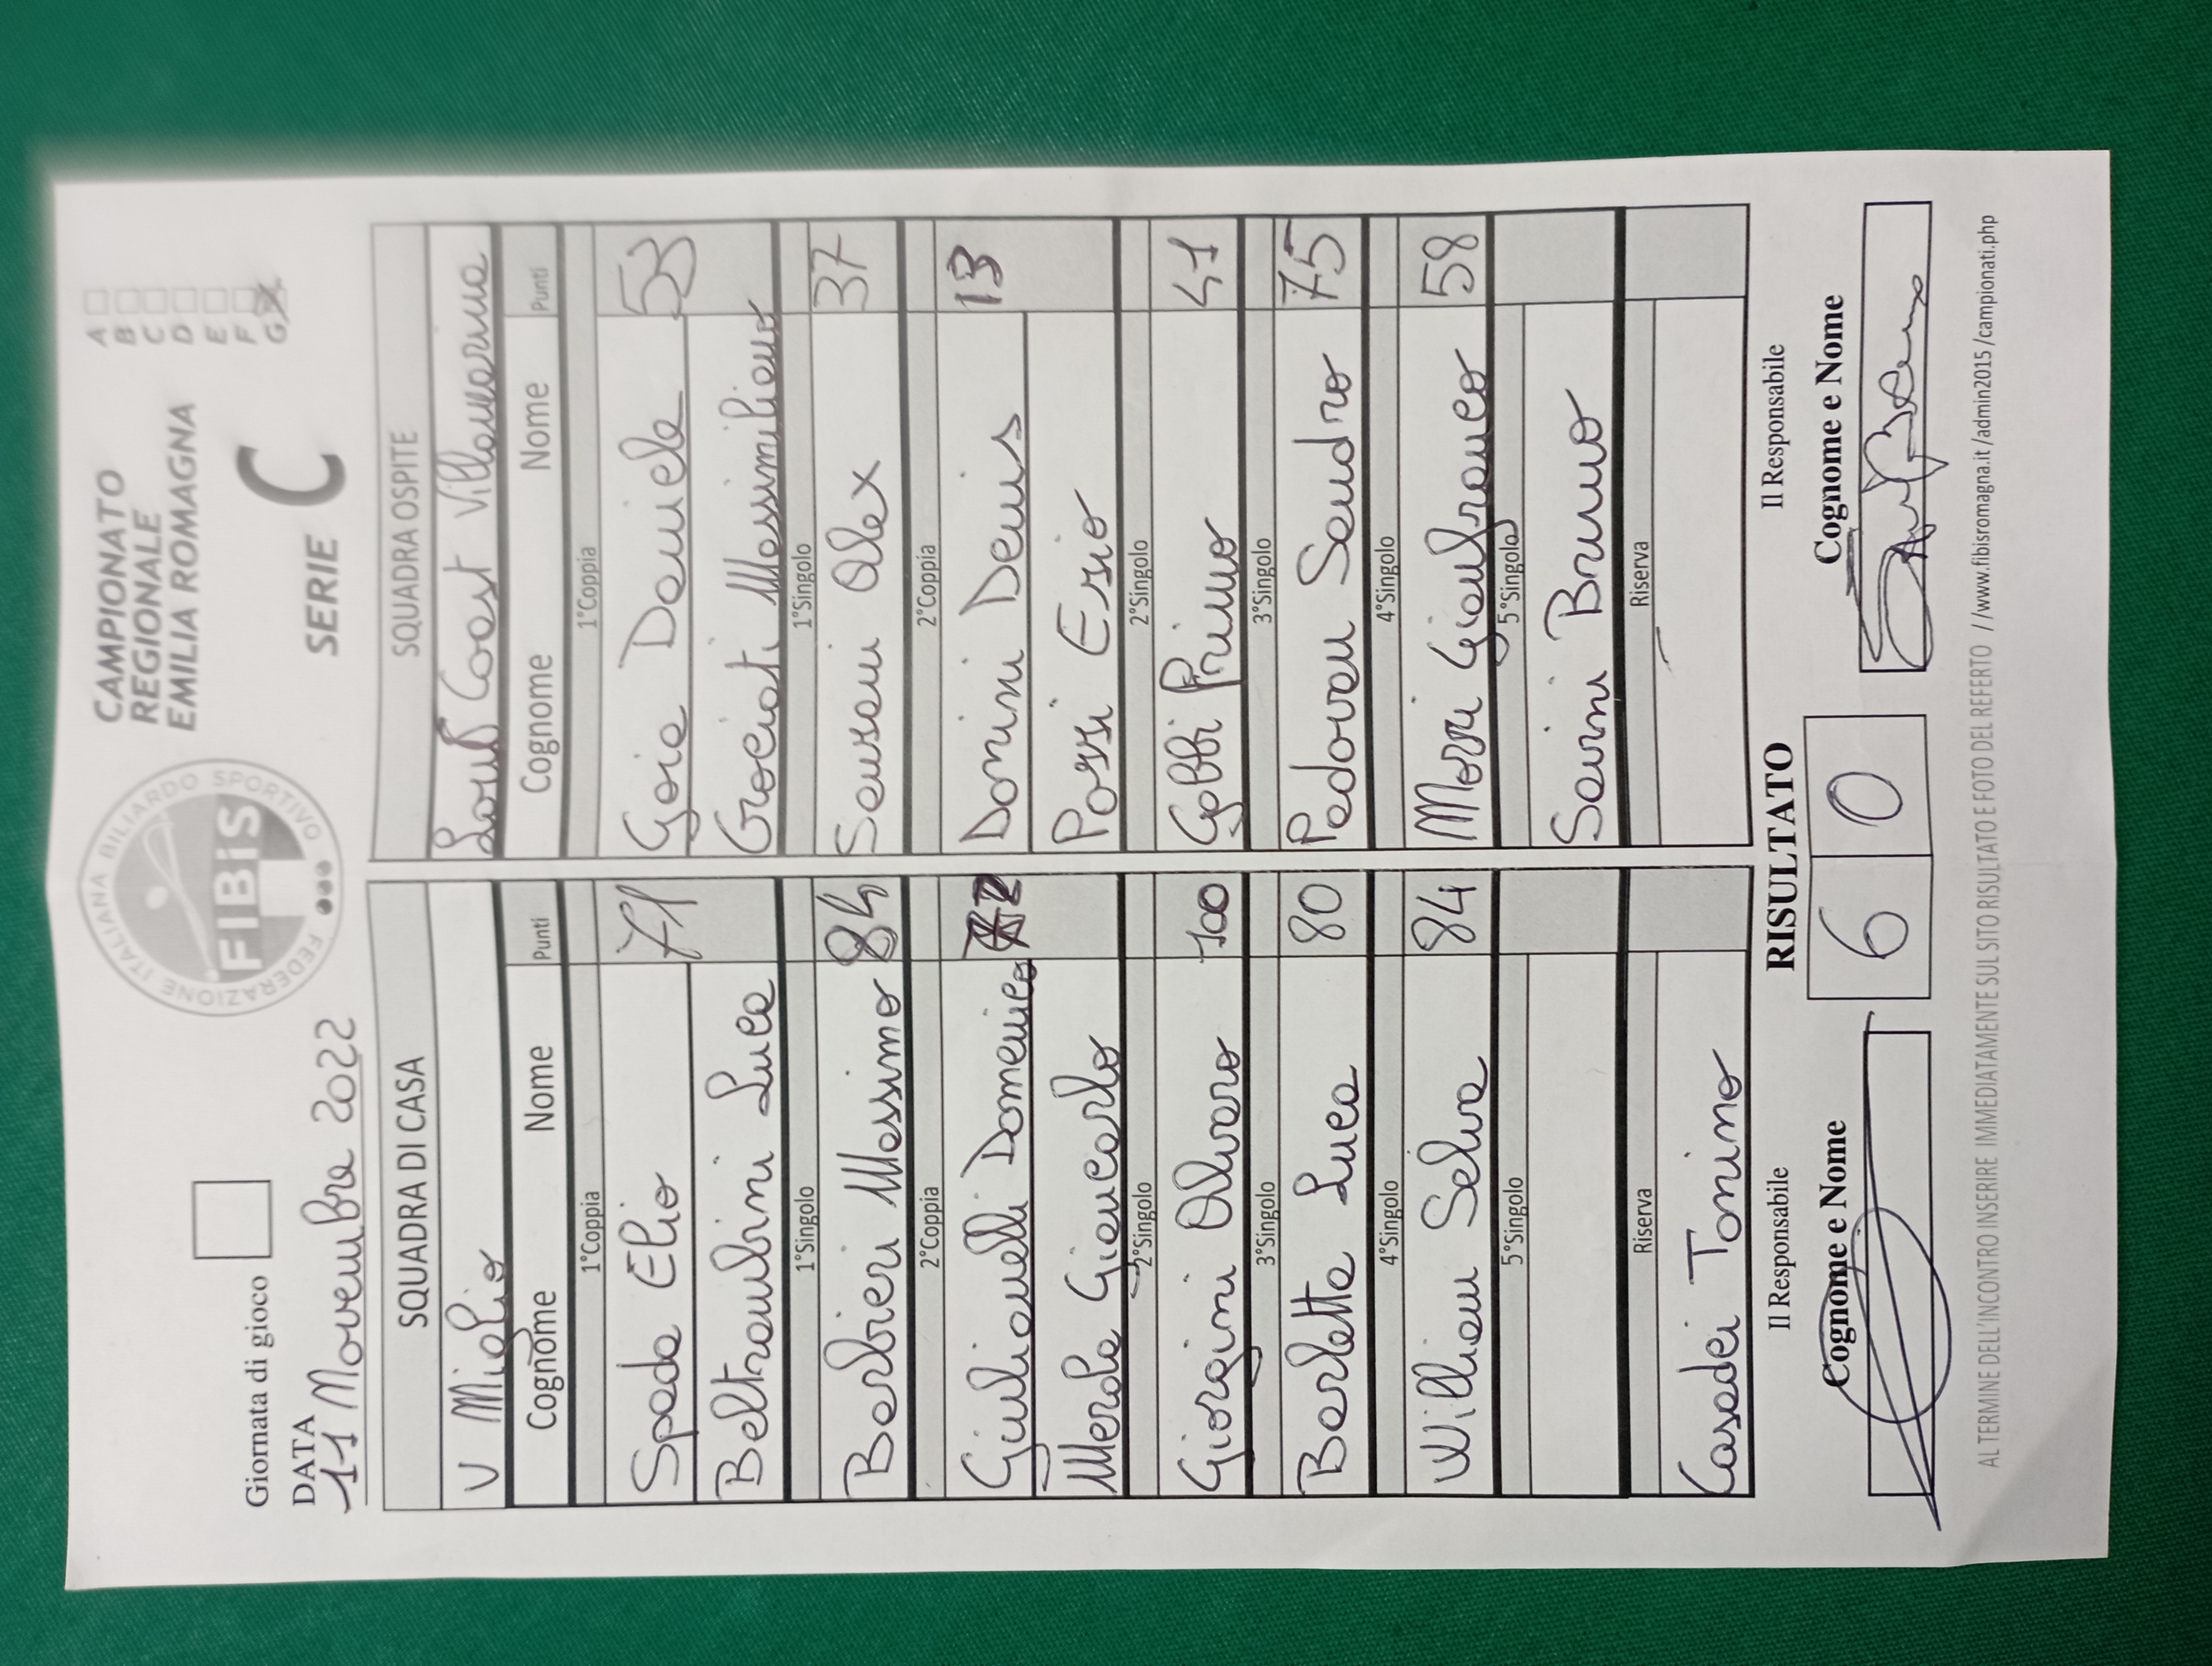 Giornata di gioco
DATA
11 Novembre 2022
FEDERAZIONE ITALIANA BILIARDO SPORTIVO
FIBiS
CAMPIONATO
REGIONALE
EMILIA ROMAGNA
SERIE C
A
B
C
D
E
F
G
SQUADRA DI CASA
V Miglio
Cognome Nome Punti
1°Coppia
Spada Elio 71
Beltrambini Luca
1°Singolo
Barbieri Massimo 84
2°Coppia
Giulianelli Domenico
Merola Giancarlo
2°Singolo
Giorgini Alvaro 100
3°Singolo
Barletta Luca 80
4°Singolo
William Selva 84
5°Singolo
Riserva
Casadei Tonino
Il Responsabile
Cognome e Nome
SQUADRA OSPITE
Coast Villamarina
Cognome Nome Punti
1°Coppia
Goia Daniele 53
Grociati Massimiliano
1°Singolo
Sensani Alex 37
2°Coppia
Donini Denis 13
Possi Ersio
2°Singolo
Gobbi Primo 41
3°Singolo
Padovan Sandro 75
4°Singolo
Morri Gianfranco 58
5°Singolo
Savini Bruno
Riserva
Il Responsabile
Cognome e Nome
RISULTATO
6 0
AL TERMINE DELL'INCONTRO INSERIRE IMMEDIATAMENTE SUL SITO RISULTATO E FOTO DEL REFERTO //www.fibisromagna.it /admin2015 /campionati.php